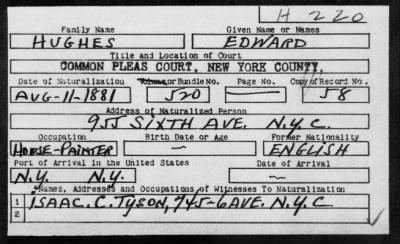 H 220
Family Name Given Name or Names
HUGHES EDWARD
Title and Location of Court
COMMON PLEAS COURT, NEW YORK COUNTY,
Date of Naturalization Volume or Bundle No. Page No. Copy of Record No.
AUG-11-1881 520 — 58
Address of Naturalized Person
955 SIXTH AVE. N.Y.C.
Occupation Birth Date or Age Former Nationality
HOUSE-PAINTER — ENGLISH
Port of Arrival in the United States Date of Arrival
N.Y. N.Y. —
Names, Addresses and Occupations of Witnesses To Naturalization
1 ISAAC. C. TYSON, 745-6 AVE. N.Y.C
2